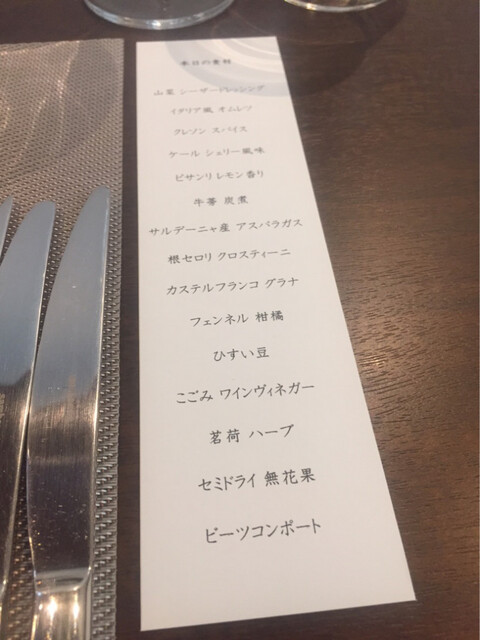 本日の食材
山菜 シーザードレッシング
イタリア風 オムレツ
クレソン スパイス
ケール シェリー風味
ピサンリ レモン香り
牛蒡 炭煮
サルデーニャ産 アスパラガス
根セロリ クロスティーニ
カステルフランコ グラナ
フェンネル 柑橘
ひすい豆
こごみ ワインヴィネガー
茗荷 ハーブ
セミドライ 無花果
ビーツコンポート